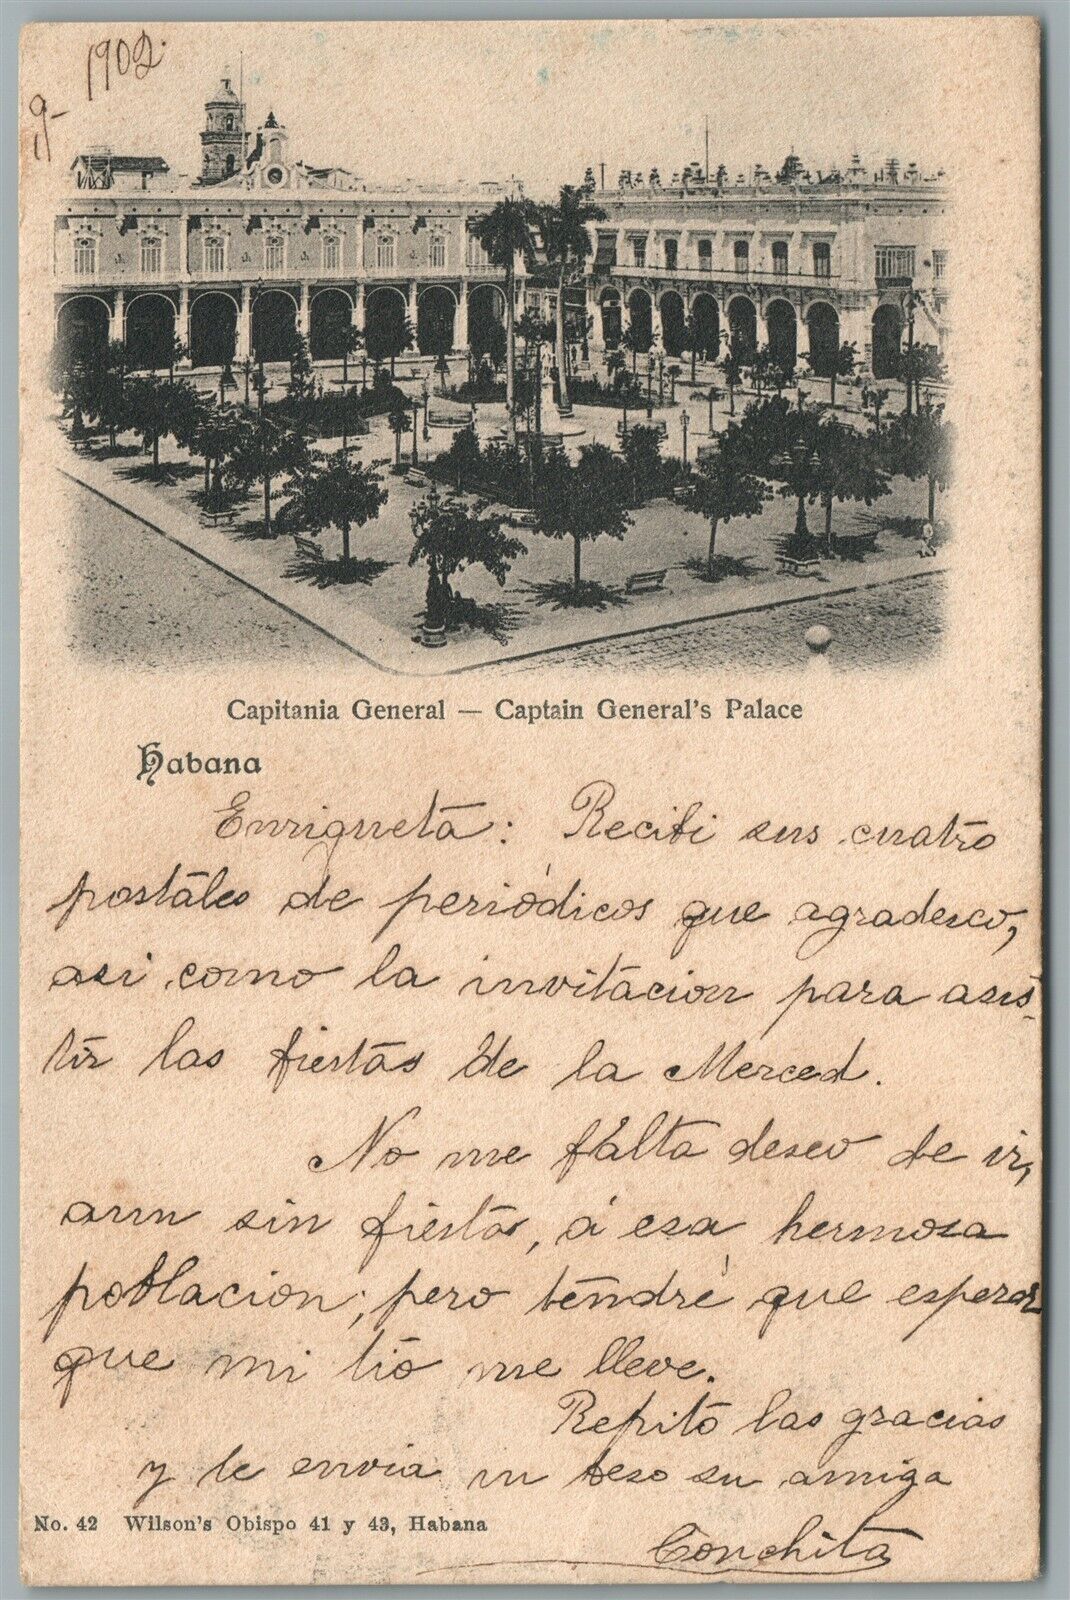 9- 1902.
Capitania General — Captain General's Palace
Habana
Enriqueta: Recibi sus cuatro
postales de periódicos que agradesco,
asi como la invitacion para asis-
tir las fiestas de la Merced.
No me falta deseo de ir,
aun sin fiestas, á esa hermosa
poblacion; pero tendré que esperar
que mi tio me lleve.
Repito las gracias
y le envia un beso su amiga
Conchita
No. 42 Wilson's Obispo 41 y 43, Habana